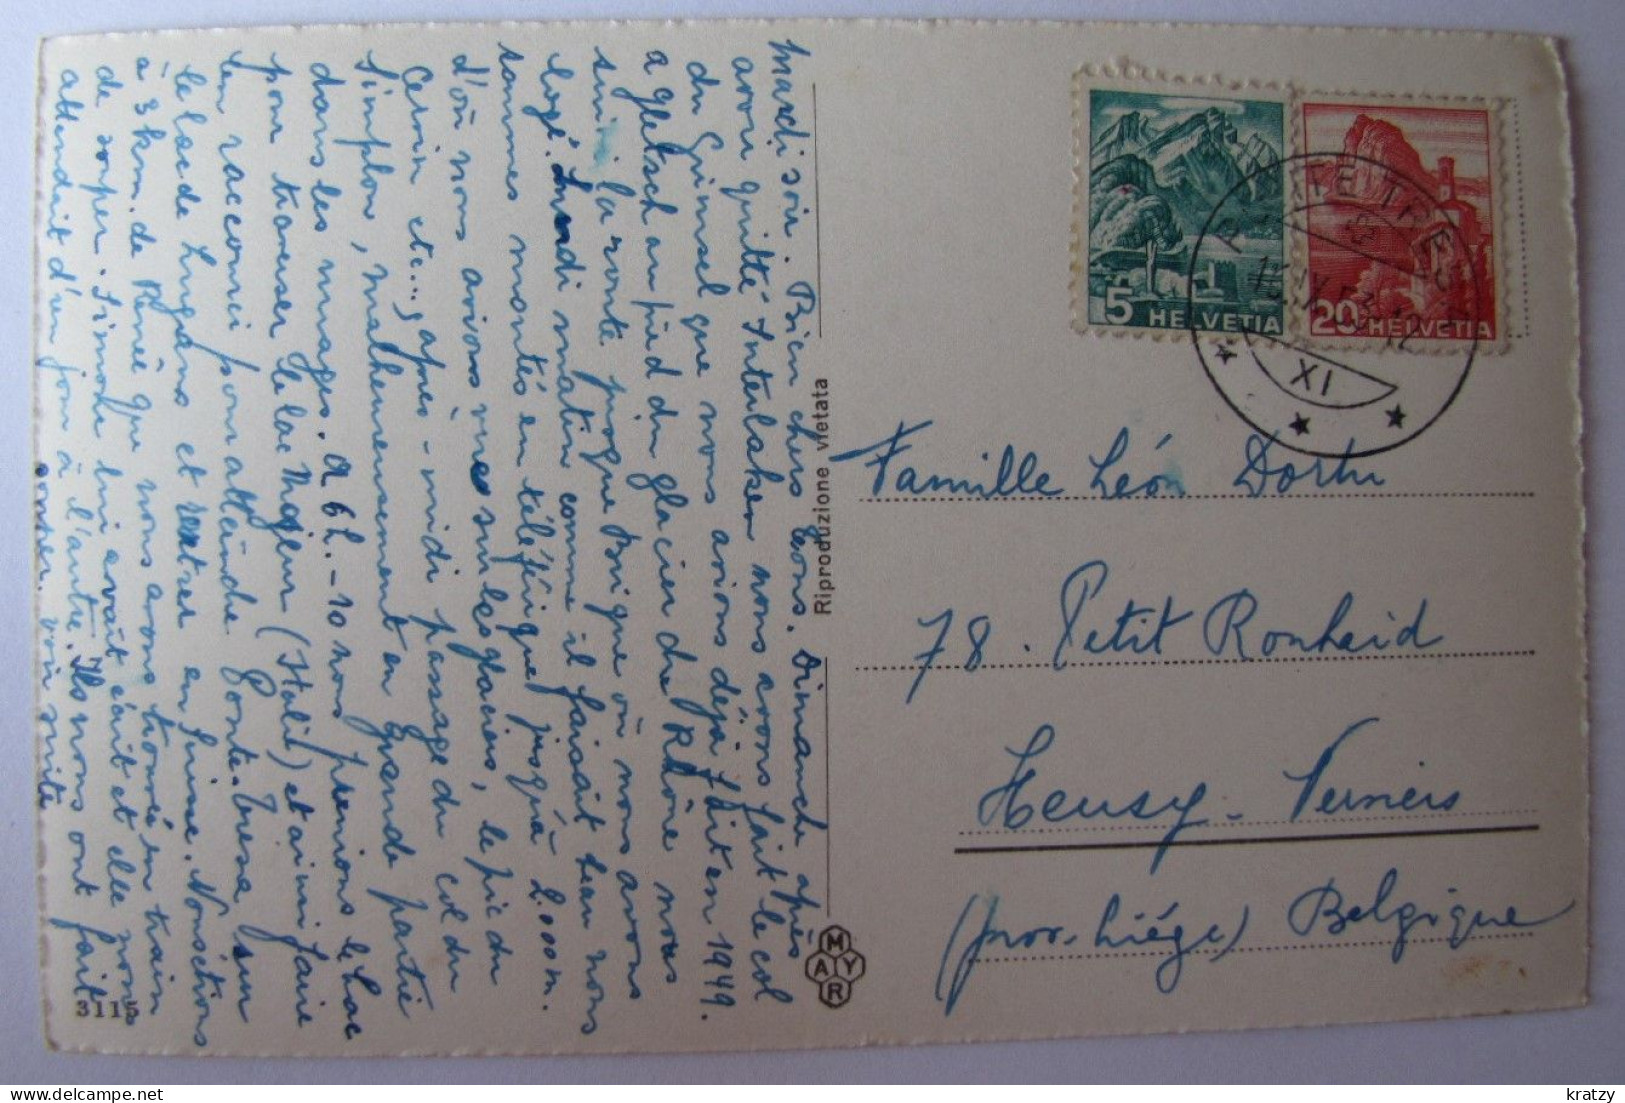 Mardi soir. Bien chers tous. Dimanche après
avoir quitté Interlaken nous avons fait le col
du Grimsel que nous avions déjà fait en 1949.
a gletsch au pied du glacier du Rhône nous
la route jusque Brigue où nous avons
logé. Lundi matin comme il faisait beau nous
sommes montés en téléférique jusqu'à 2.000m.
d'où nous avions vue sur les glaciers, le pic du
Cervin etc..., après-midi passage du col du
Simplon, malheureusement en grande partie
dans les nuages. A 6h.-10 nous prenions le bac
pour traverser le lac Majeur (Italie) et ainsi faire
un raccourci pour atteindre Ponte-Tresa sur
le lac de Lugano et rentrer en Suisse. Nous étions
à 3 km. de Renée que nous avons trouvée en train
de souper. Simone lui avait écrit et elle nous
attendait d'un jour à l'autre. Ils nous ont fait
souper. voir suite
3115
Riproduzione vietata
MAYR
5 HELVETIA
20 HELVETIA
15.IX.53.12
XI
Famille Léon Dortu
78. Petit Ronheid
Heusy-Verviers
(prov. Liége) Belgique
© kratzy